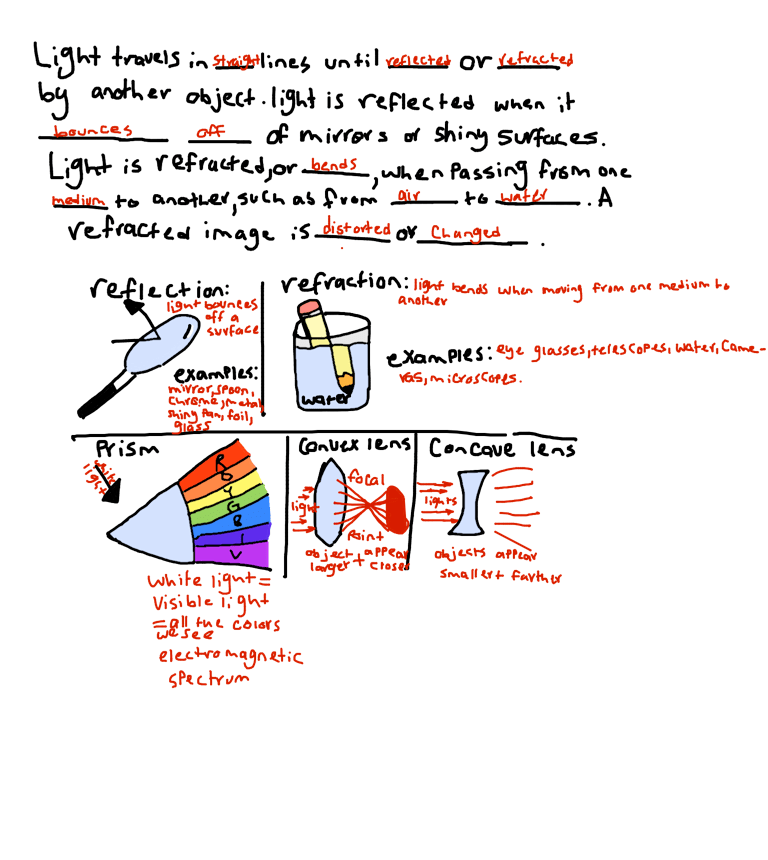 Light travels in straight lines until reflected or refracted
by another object. light is reflected when it
bounces off of mirrors or shiny surfaces.
Light is refracted, or bends, when passing from one
medium to another, such as from air to water. A
refracted image is distorted or changed.
reflection:
light bounces
off a
surface
examples:
mirror, spoon,
chrome, metal
shiny pan, foil,
glass
refraction: light bends when moving from one medium to
another
water
examples: eye glasses, telescopes, water, came-
ras, microscopes.
Prism
white
light
R
O
Y
G
B
I
V
White light =
Visible light
= all the colors
we see
electromagnetic
spectrum
Convex lens
focal
light
Point
object appear
larger + close
Concave lens
lights
objects appear
smaller + farther